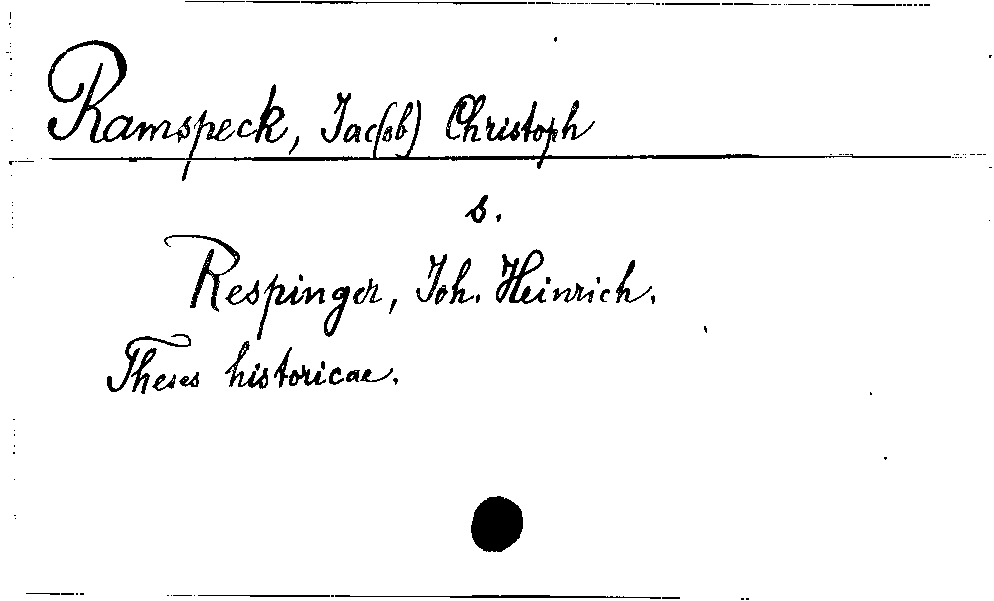 Ramspeck, Jac(ob) Christoph
s.
Respinger, Joh. Heinrich.
Theses historicae.